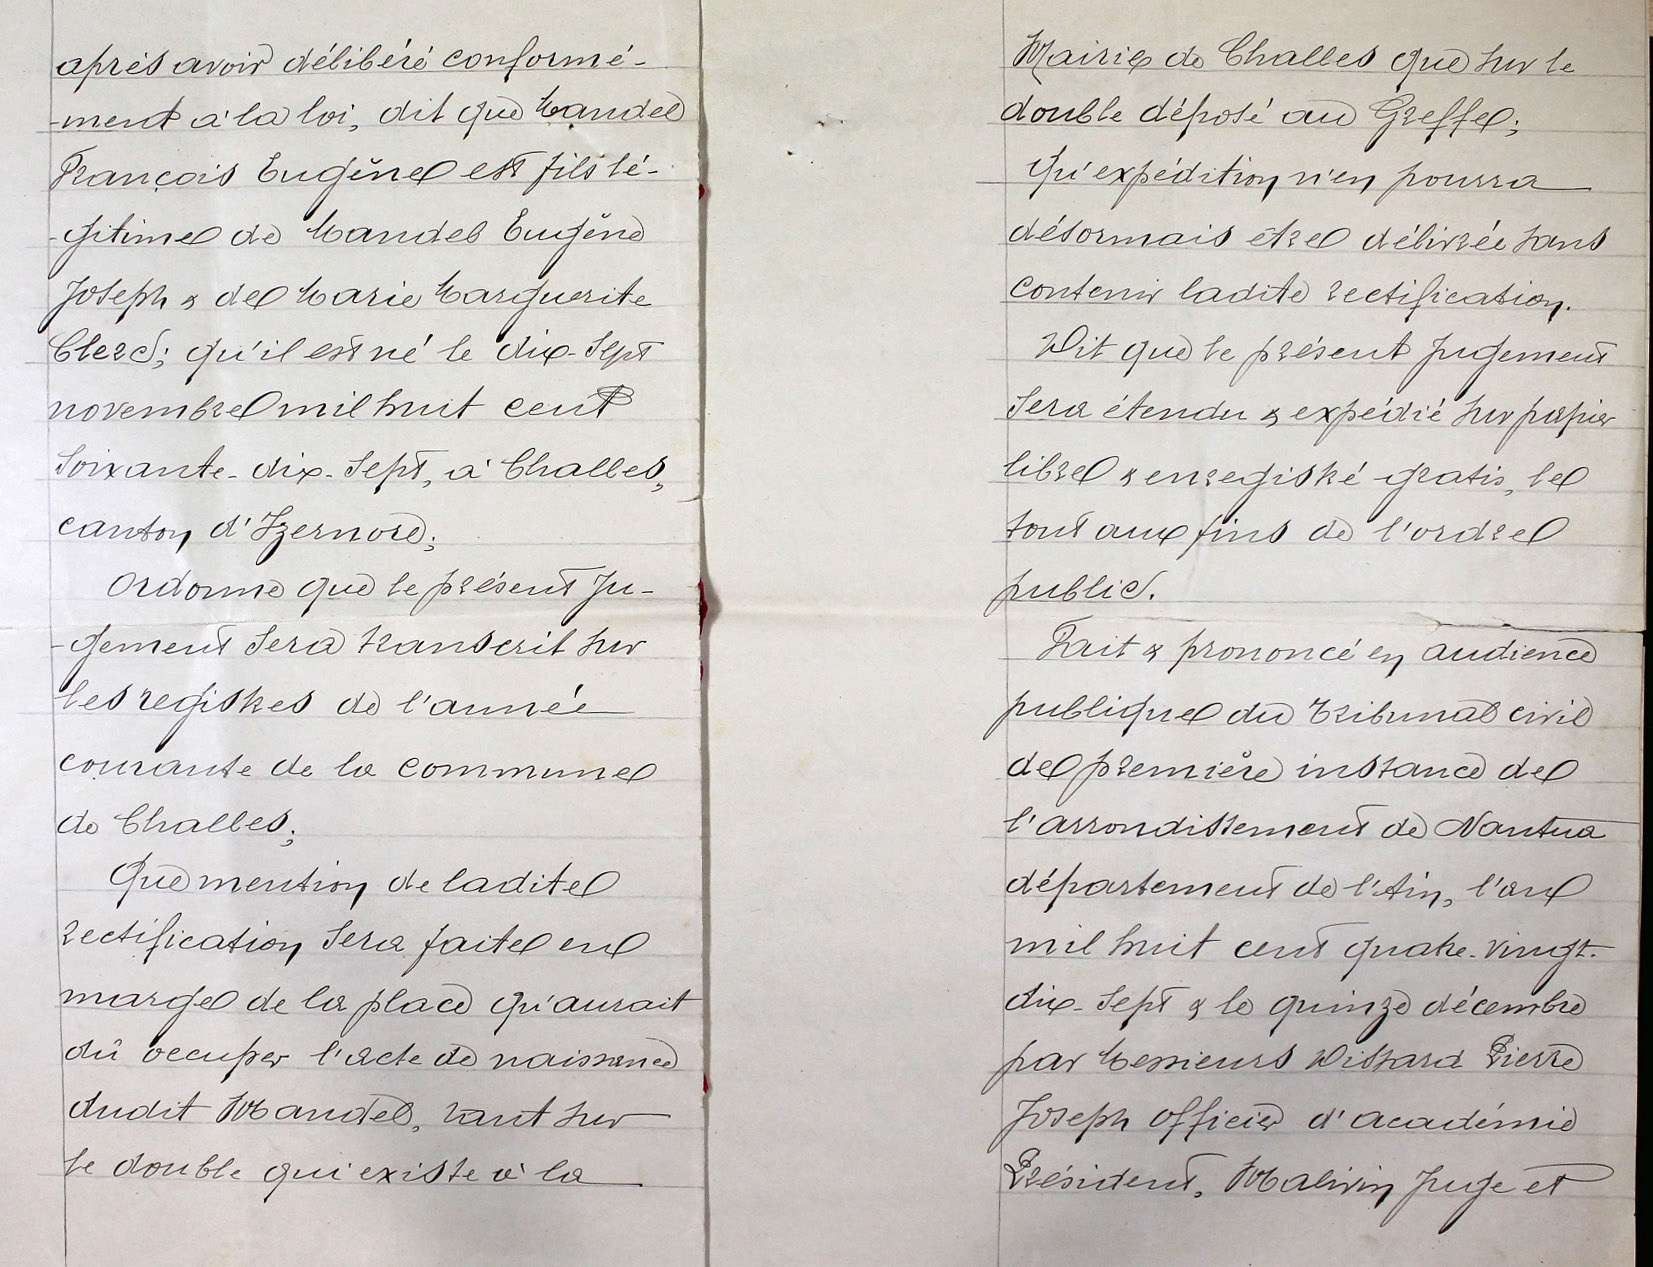 après avoir délibéré conformé-
-ment à la loi, dit que Mandel
François Eugène est fils lé-
-gitime de Mandel Eugène
Joseph & de Marie Marguerite
Clerc; qu'il est né le dix-sept
novembre mil huit cent
soixante-dix-sept, à Challes,
canton d'Izernore;
Ordonne que le présent ju-
-gement sera transcrit sur
les registres de l'année
courante de la commune
de Challes;
Que mention de ladite
rectification sera faite en
marge de la place qu'aurait
dû occuper l'acte de naissance
dudit Mandel, tant sur
le double qui existe à la
Mairie de Challes que sur le
double déposé au Greffe;
Qu'expédition n'en pourra
désormais etre délivrée sans
contenir ladite rectification.
Dit que le présent jugement
sera étendu & expédié sur papier
libre & enregistré gratis, le
tout aux fins de l'ordre
public.
Fait & prononcé en audience
publique du tribunal civil
de première instance de
l'arrondissement de Nantua
département de l'Ain, l'an
mil huit cent quatre-vingt-
dix-sept & le quinze décembre
par Messieurs Distard Pierre
Joseph officier d'académie
Président, Malivin Juge et